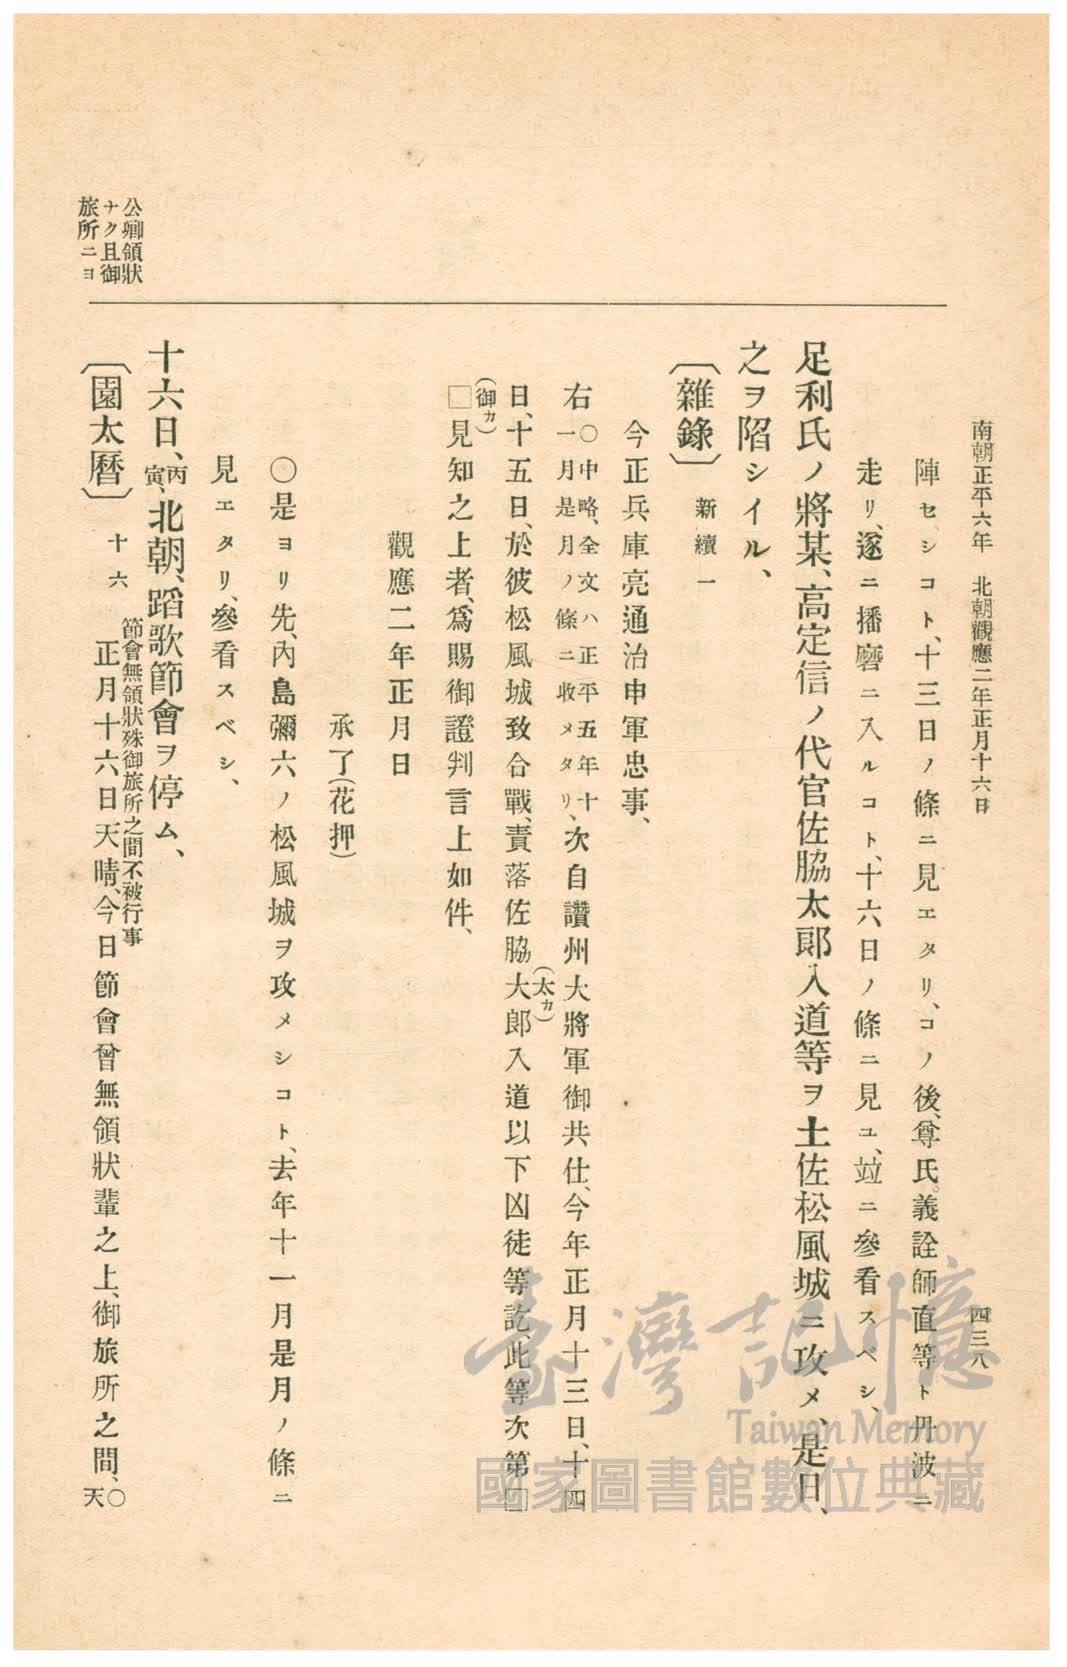 南朝正平六年　北朝觀應二年正月十六日
四三八
陣セシコト、十三日ノ條ニ見エタリ、コノ後、尊氏。義詮師直等ト丹波ニ
走リ、遂ニ播磨ニ入ルコト、十六日ノ條ニ見ユ、竝ニ參看スベシ、
足利氏ノ將某、高定信ノ代官佐脇太郎入道等ヲ土佐松風城ニ攻メ、是日、
之ヲ陷シイル、
〔雜錄〕新續一
今正兵庫亮通治申軍忠事、
右〇中略、全文ハ正平五年十一月是月ノ條ニ收メタリ、次自讚州大將軍御共仕、今年正月十三日、十四
日、十五日、於彼松風城致合戰、責落佐脇大(太カ)郎入道以下凶徒等訖、此等次第□
□(御カ)見知之上者、爲賜御證判言上如件、
觀應二年正月日
承了(花押)
〇是ヨリ先、內島彌六ノ松風城ヲ攻メシコト、去年十一月是月ノ條ニ
見エタリ、參看スベシ、
十六日、丙寅、北朝、蹈歌節會ヲ停ム、
〔園太曆〕十六
節會無領狀殊御旅所之間不被行事
正月十六日天晴、今日節會曾無領狀輩之上、御旅所之間、〇天
公卿領狀
ナク且御
旅所ニヨ
臺灣記憶
Taiwan Memory
國家圖書館數位典藏